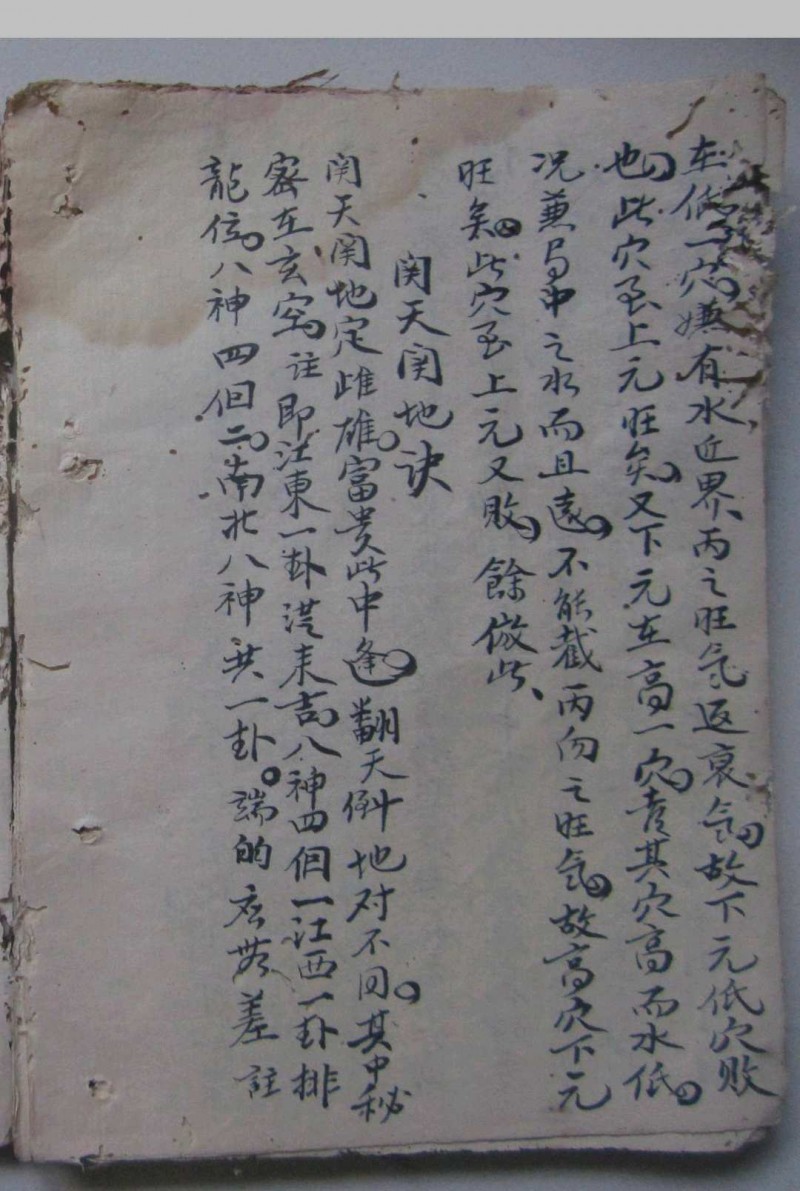 在低一穴嫌有水近界丙之旺氣返衰氣故下元低穴敗
也此穴至上元旺矣又下元在高一穴者其穴高而水低
况兼局中之水而且遠不能截丙向之旺氣故高穴下元
旺矣此穴至上元又敗餘倣此
関天関地訣
関天関地定雌雄富貴此中逢翻天倒地对不同其中秘
密在玄空註即江東一卦從來吉八神四個一江西一卦排
龍位八神四個二南北八神共一卦端的应無差註